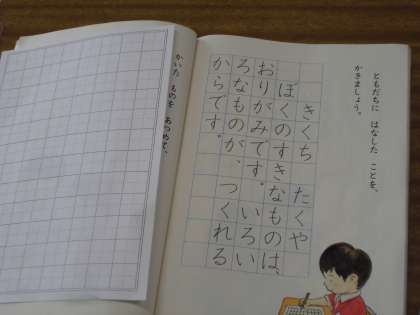 ともだちに はなした ことを、
かきましょう。
きくち たくや
ぼくのすきなものは、
おりがみです。いろい
ろなものが、つくれる
からです。
かいた ものを あつめて、